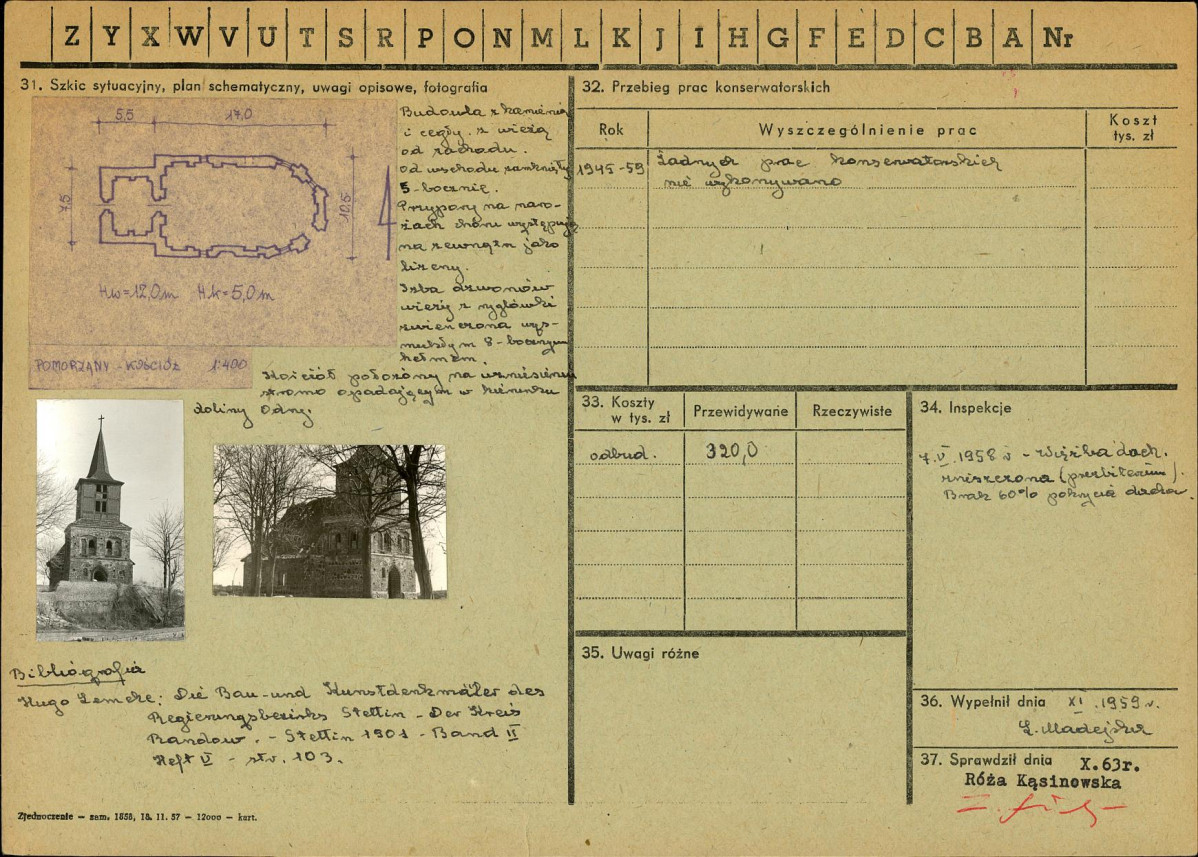 Z Y X W V U T S R P O N M L K J I H G F E D C B A Nr
31. Szkic sytuacyjny, plan schematyczny, uwagi opisowe, fotografia
5,5 17,0
7,5
10,6
Hw=12,0m Hk=5,0m
POMORZANY - KOŚCIÓŁ 1:400
Budowla z kamienia
i cegły z wieżą
od zachodu.
Od wschodu zamknięty
5-bocznie.
Przypory na naro-
żach chóru występują
na zewnątrz jako
lizeny.
Izba dzwonów
wieży z ryglówki
zwieńczona wys-
mukłym 8-bocznym
hełmem.
Kościół położony na wzniesieniu
stromo opadającym w kierunku
doliny Odry.
Bibliografia
Hugo Lemcke: Die Bau-und Kunstdenkmäler des
Regierungsbezirks Stettin - Der Kreis
Randow. - Stettin 1901 - Band II
Heft V - str. 103.
Zjednoczenie — zam. 1858, 18. 11. 57 — 12000 — kart.
32. Przebieg prac konserwatorskich
Rok Wyszczególnienie prac Koszt
tys. zł
1945-59 Żadnych prac konserwatorskich
nie wykonywano
33. Koszty
w tys. zł Przewidywane Rzeczywiste
odbud. 320,0
34. Inspekcje
7.V.1958 r - Więźba dach.
zniszczona (prezbiterium).
Brak 60% pokrycia dachu.
35. Uwagi różne
36. Wypełnił dnia XI.1959 r.
Ł. Madejska
37. Sprawdził dnia X.63r.
Róża Kąsinowska